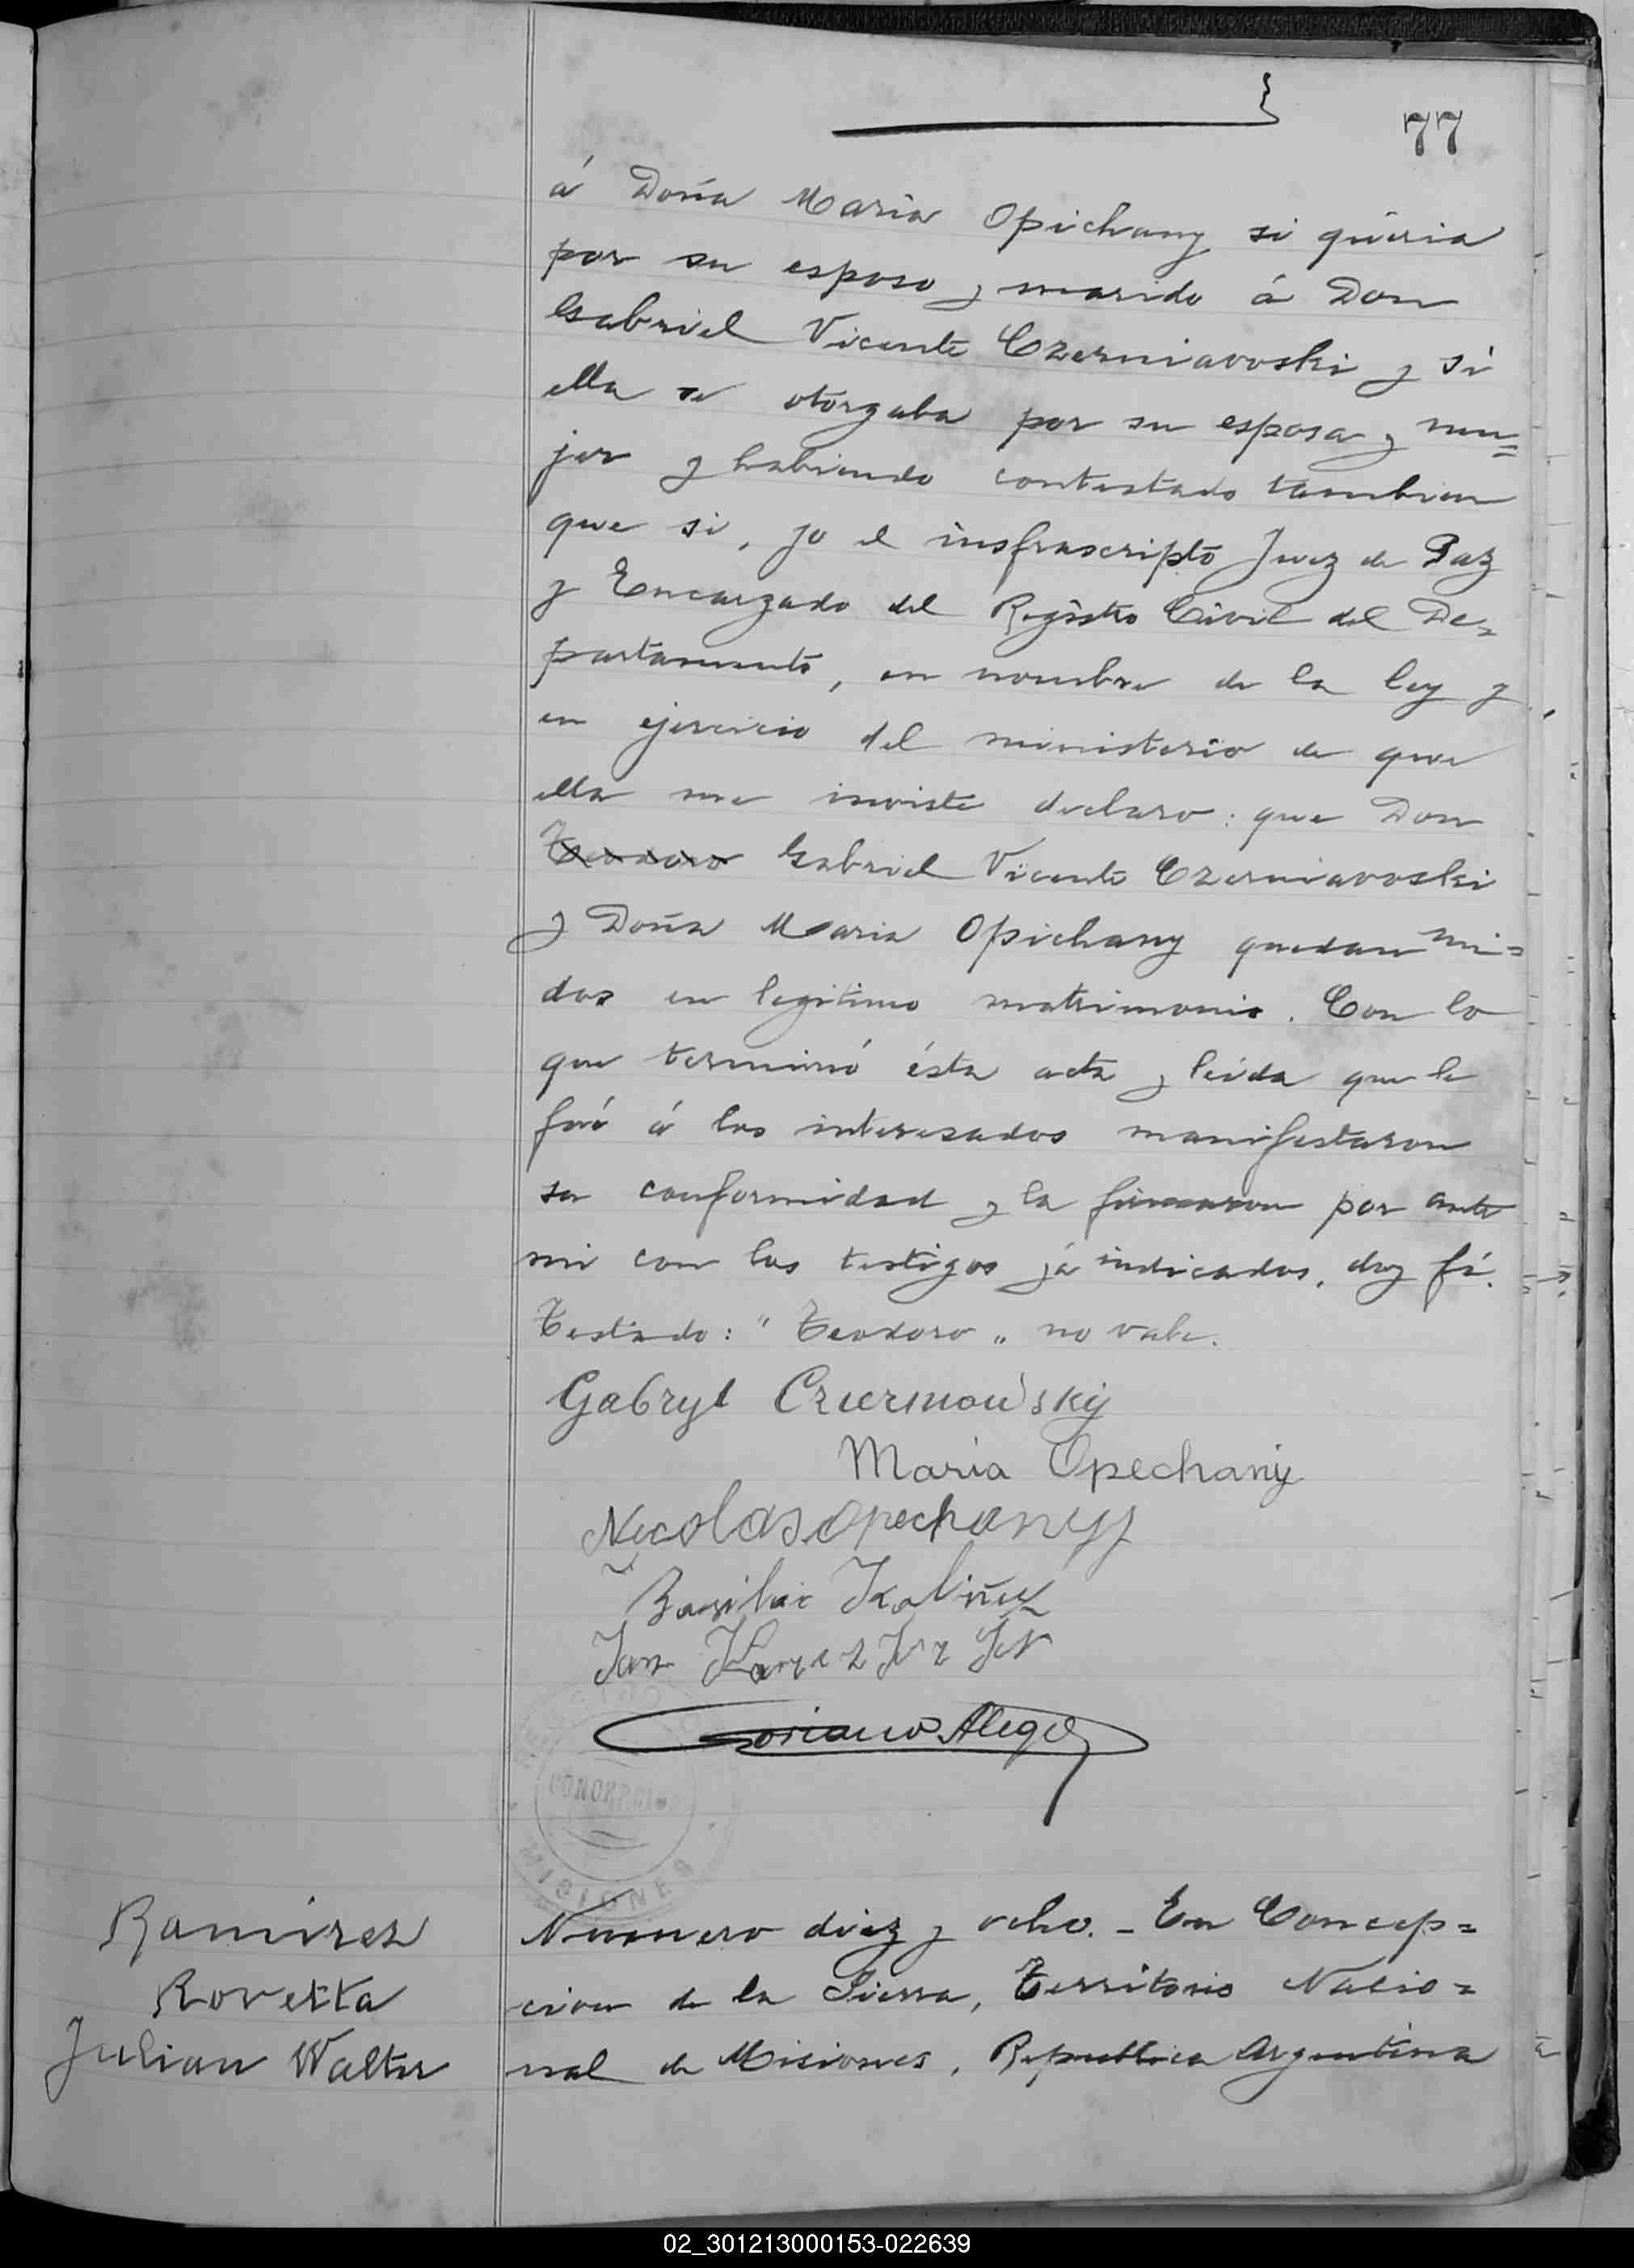 77
á Doña Maria Opichany si quiria
por su esposo y marido á Don
Gabriel Vicente Czerniavoski y si
ella se otorgaba por su esposa y mu=
jer y habiendo contestado tambien
que si, yo el insfrascripto Juez de Paz
y Encargado del Registro Civil del De=
partamento, en nombre de la ley y
en ejercicio del ministerio de que
ella me inviste declaro: que Don
Teodoro Gabriel Vicente Czerniavoski
y Doña Maria Opichany quedan uni=
dos en legitimo matrimonio. Con lo
que terminó ésta acta y leida que le
fué á los interesados manifestaron
su conformidad y la firmaron por ante
mi con los testigos já indicados, doy fé.
Testado: "Teodoro" no vale.
Gabryl Czerniowsky
Maria Opechany
Nicolas Opechany
Jan
Soriano Alege
CONCEPCION
MISIONES
Ramirez
Rovetta
Julian Walter
Numero diez y ocho. - En Concep=
cion de la Sierra, Territorio Nacio=
nal de Misiones, Republica Argentina
02_301213000153-022639